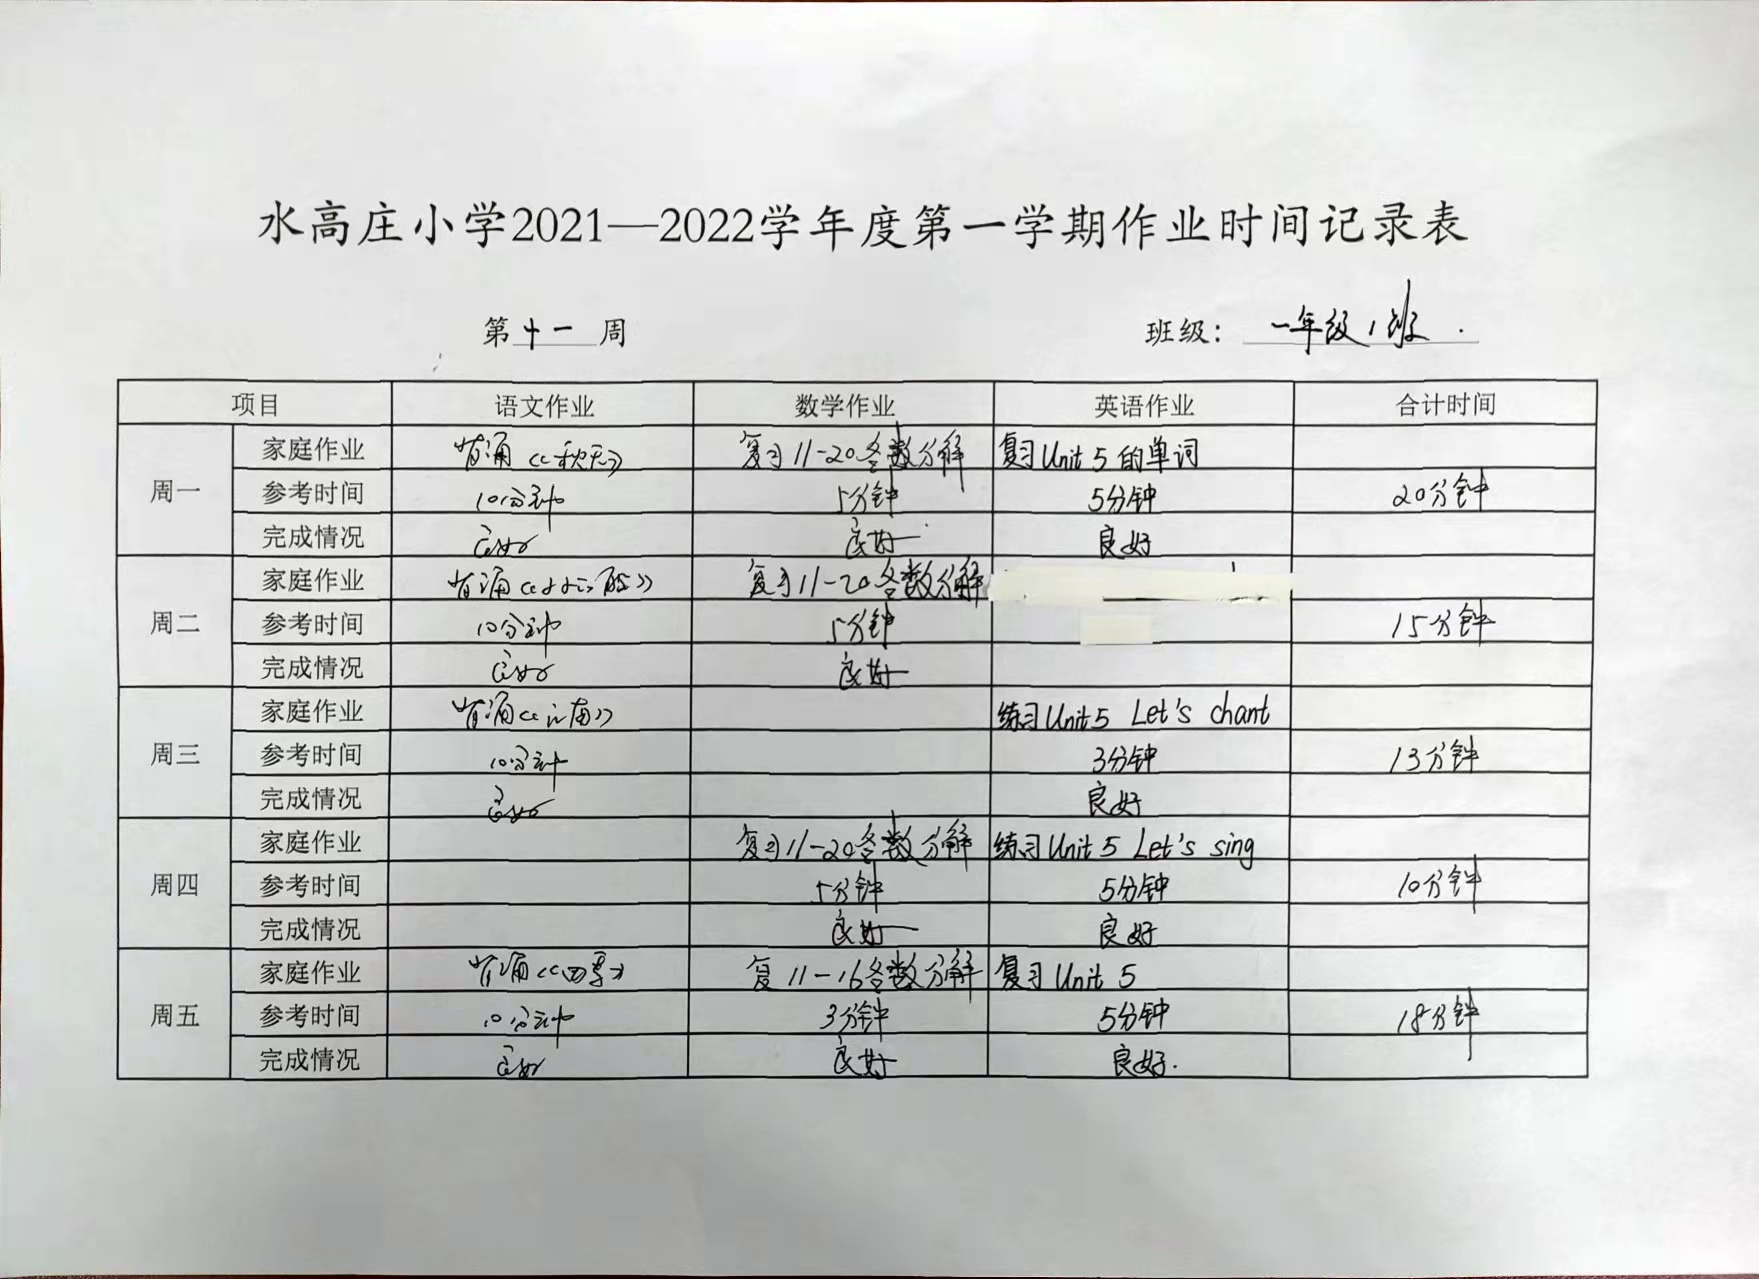 水高庄小学2021—2022学年度第一学期作业时间记录表
第十一周 班级：一年级1班.
项目 语文作业 数学作业 英语作业 合计时间
周一 家庭作业 背诵《秋天》 复习11-20各数分解 复习Unit 5的单词
参考时间 10分钟 5分钟 5分钟 20分钟
完成情况 良好 良好 良好
周二 家庭作业 背诵《小小的船》 复习11-20各数分解
参考时间 10分钟 5分钟 15分钟
完成情况 良好 良好
周三 家庭作业 背诵《江南》 练习Unit 5 Let's chant
参考时间 10分钟 3分钟 13分钟
完成情况 良好 良好
周四 家庭作业 复习11-20各数分解 练习Unit 5 Let's sing
参考时间 5分钟 5分钟 10分钟
完成情况 良好 良好
周五 家庭作业 背诵《四季》 复11-16各数分解 复习Unit 5
参考时间 10分钟 3分钟 5分钟 18分钟
完成情况 良好 良好 良好.